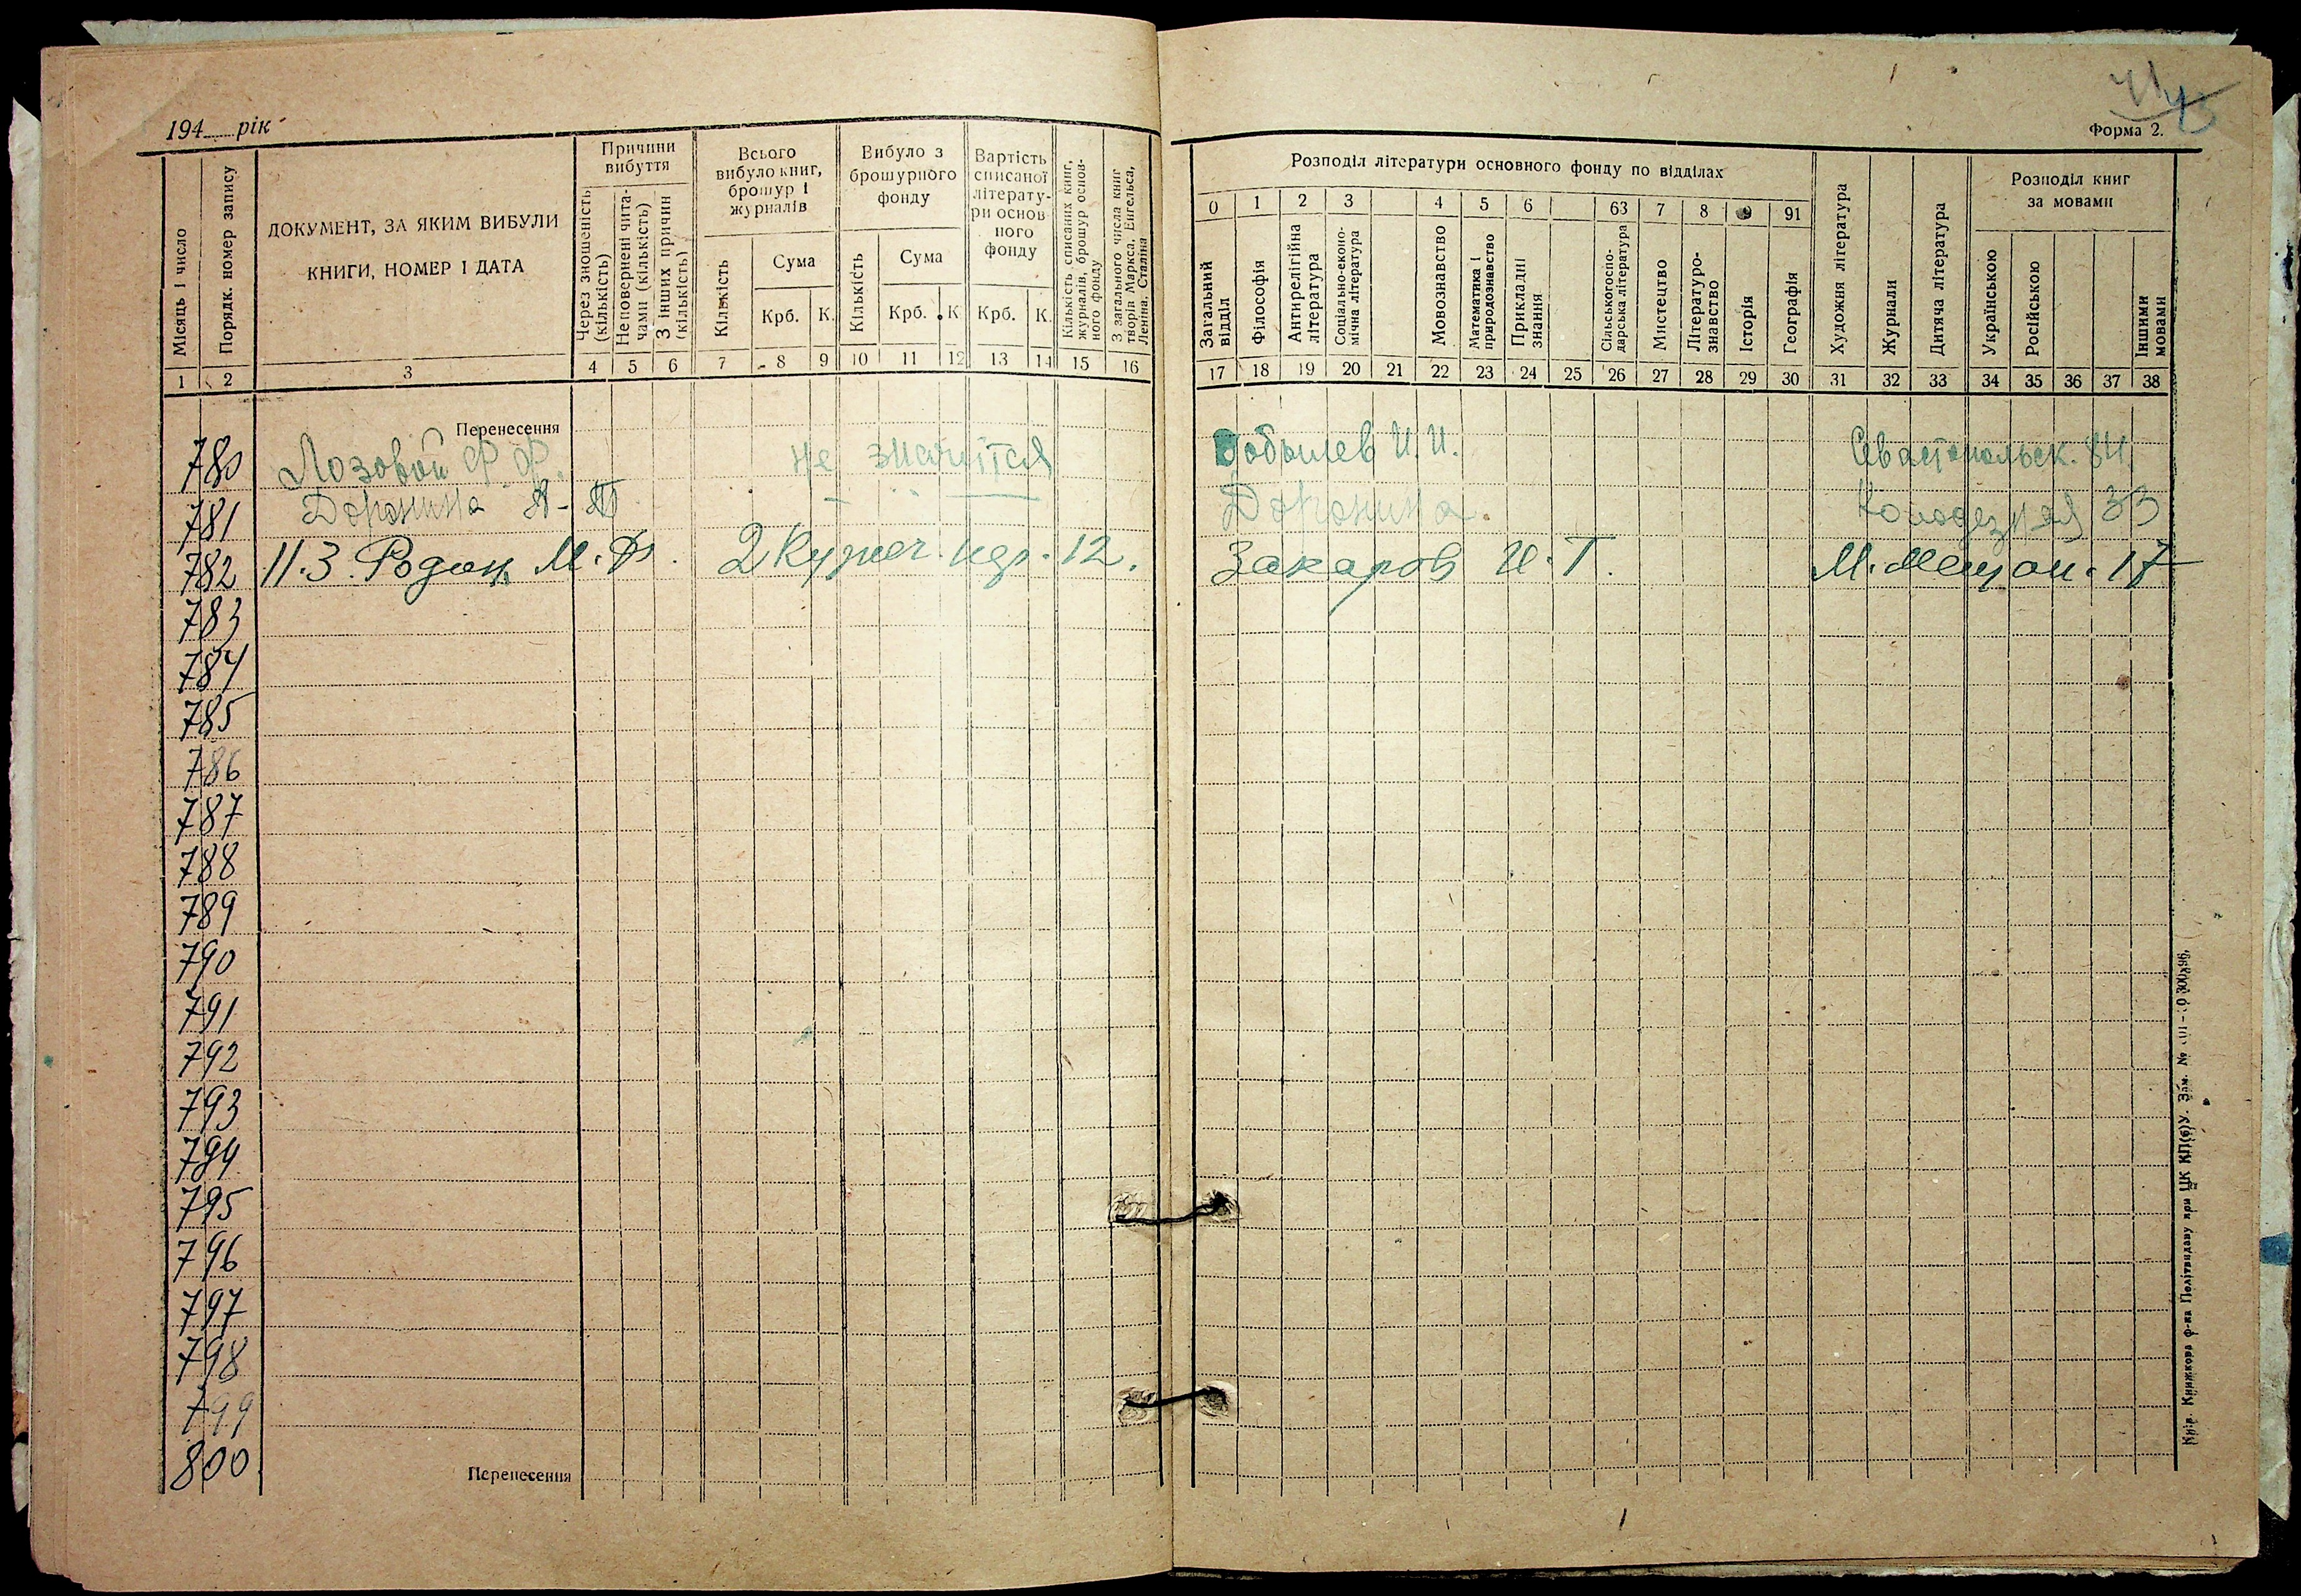 194 рік
Форма 2.
Місяць і число
Порядк. номер запису
ДОКУМЕНТ, ЗА ЯКИМ ВИБУЛИ
КНИГИ, НОМЕР І ДАТА
Причини вибуття
Через зношеність (кількість)
Неповернені читачами (кількість)
З інших причин (кількість)
Всього вибуло книг, брошур і журналів
Кількість
Сума
Крб. К.
Вибуло з брошурного фонду
Кількість
Сума
Крб. К
Вартість списаної літератури основного фонду
Крб. К.
Кількість списаних книг, журналів, брошур основного фонду
З загального числа книг творів Маркса, Енгельса, Леніна, Сталіна
1 2 3 4 5 6 7 8 9 10 11 12 13 14 15 16
Розподіл літератури основного фонду по відділах
0 1 2 3 4 5 6 63 7 8 9 91
Загальний відділ
Філософія
Антирелігійна література
Соціально-економічна література
Мовознавство
Математика і природознавство
Прикладні знання
Сільськогосподарська література
Мистецтво
Літературознавство
Історія
Географія
Художня література
Журнали
Дитяча література
Розподіл книг за мовами
Українською
Російською
Іншими мовами
17 18 19 20 21 22 23 24 25 26 27 28 29 30 31 32 33 34 35 36 37 38
Перенесення
780 Лозовой Ф. Ф. не значится И. И. Севастопольск. 84.
781 Доронина Доронина. Колодезная 33
782 11.3. М. Ф. 2 Кузнеч. 12. Захаров И. Т. М. Мещан. 17
783
784
785
786
787
788
789
790
791
792
793
794
795
796
797
798
799
800
Перенесення
Київ. Книжкова ф-ка Політвидаву при ЦК КП(б)У. Зам. №